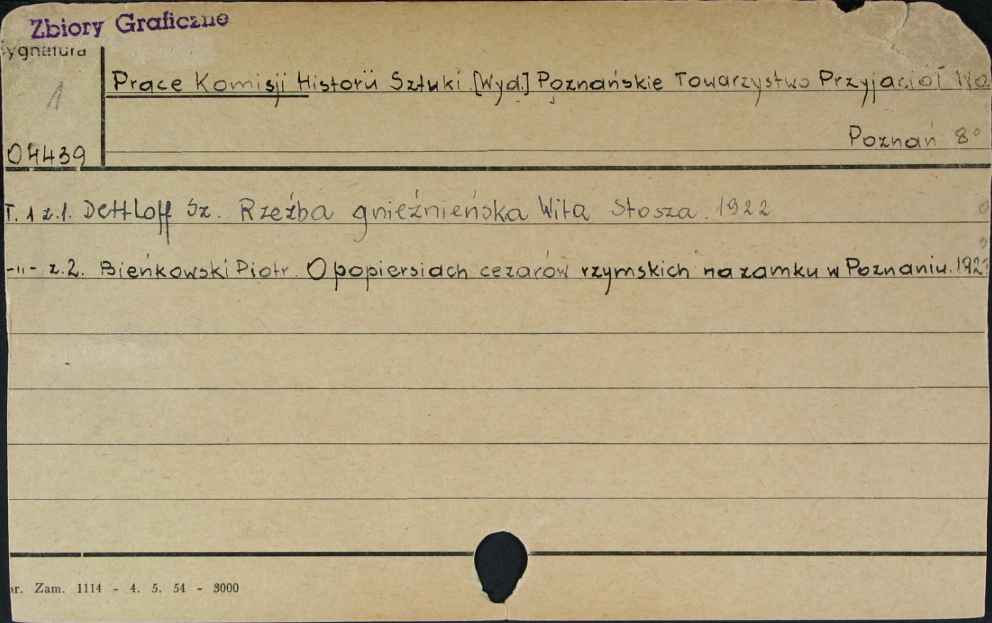 Zbiory Graficzne
ygnatura
1
Prace Komisji Historii Sztuki. [Wyd.] Poznańskie Towarzystwo Przyjaciół
Poznań 8°
04439
T. 1 z.1. Dettloff Sz. Rzeźba gnieźnieńska Wita Stosza. 1922
-"- z.2. Bieńkowski Piotr. O popiersiach cezarów rzymskich na zamku w Poznaniu.
nr. Zam. 1114 - 4. 5. 54 - 3000